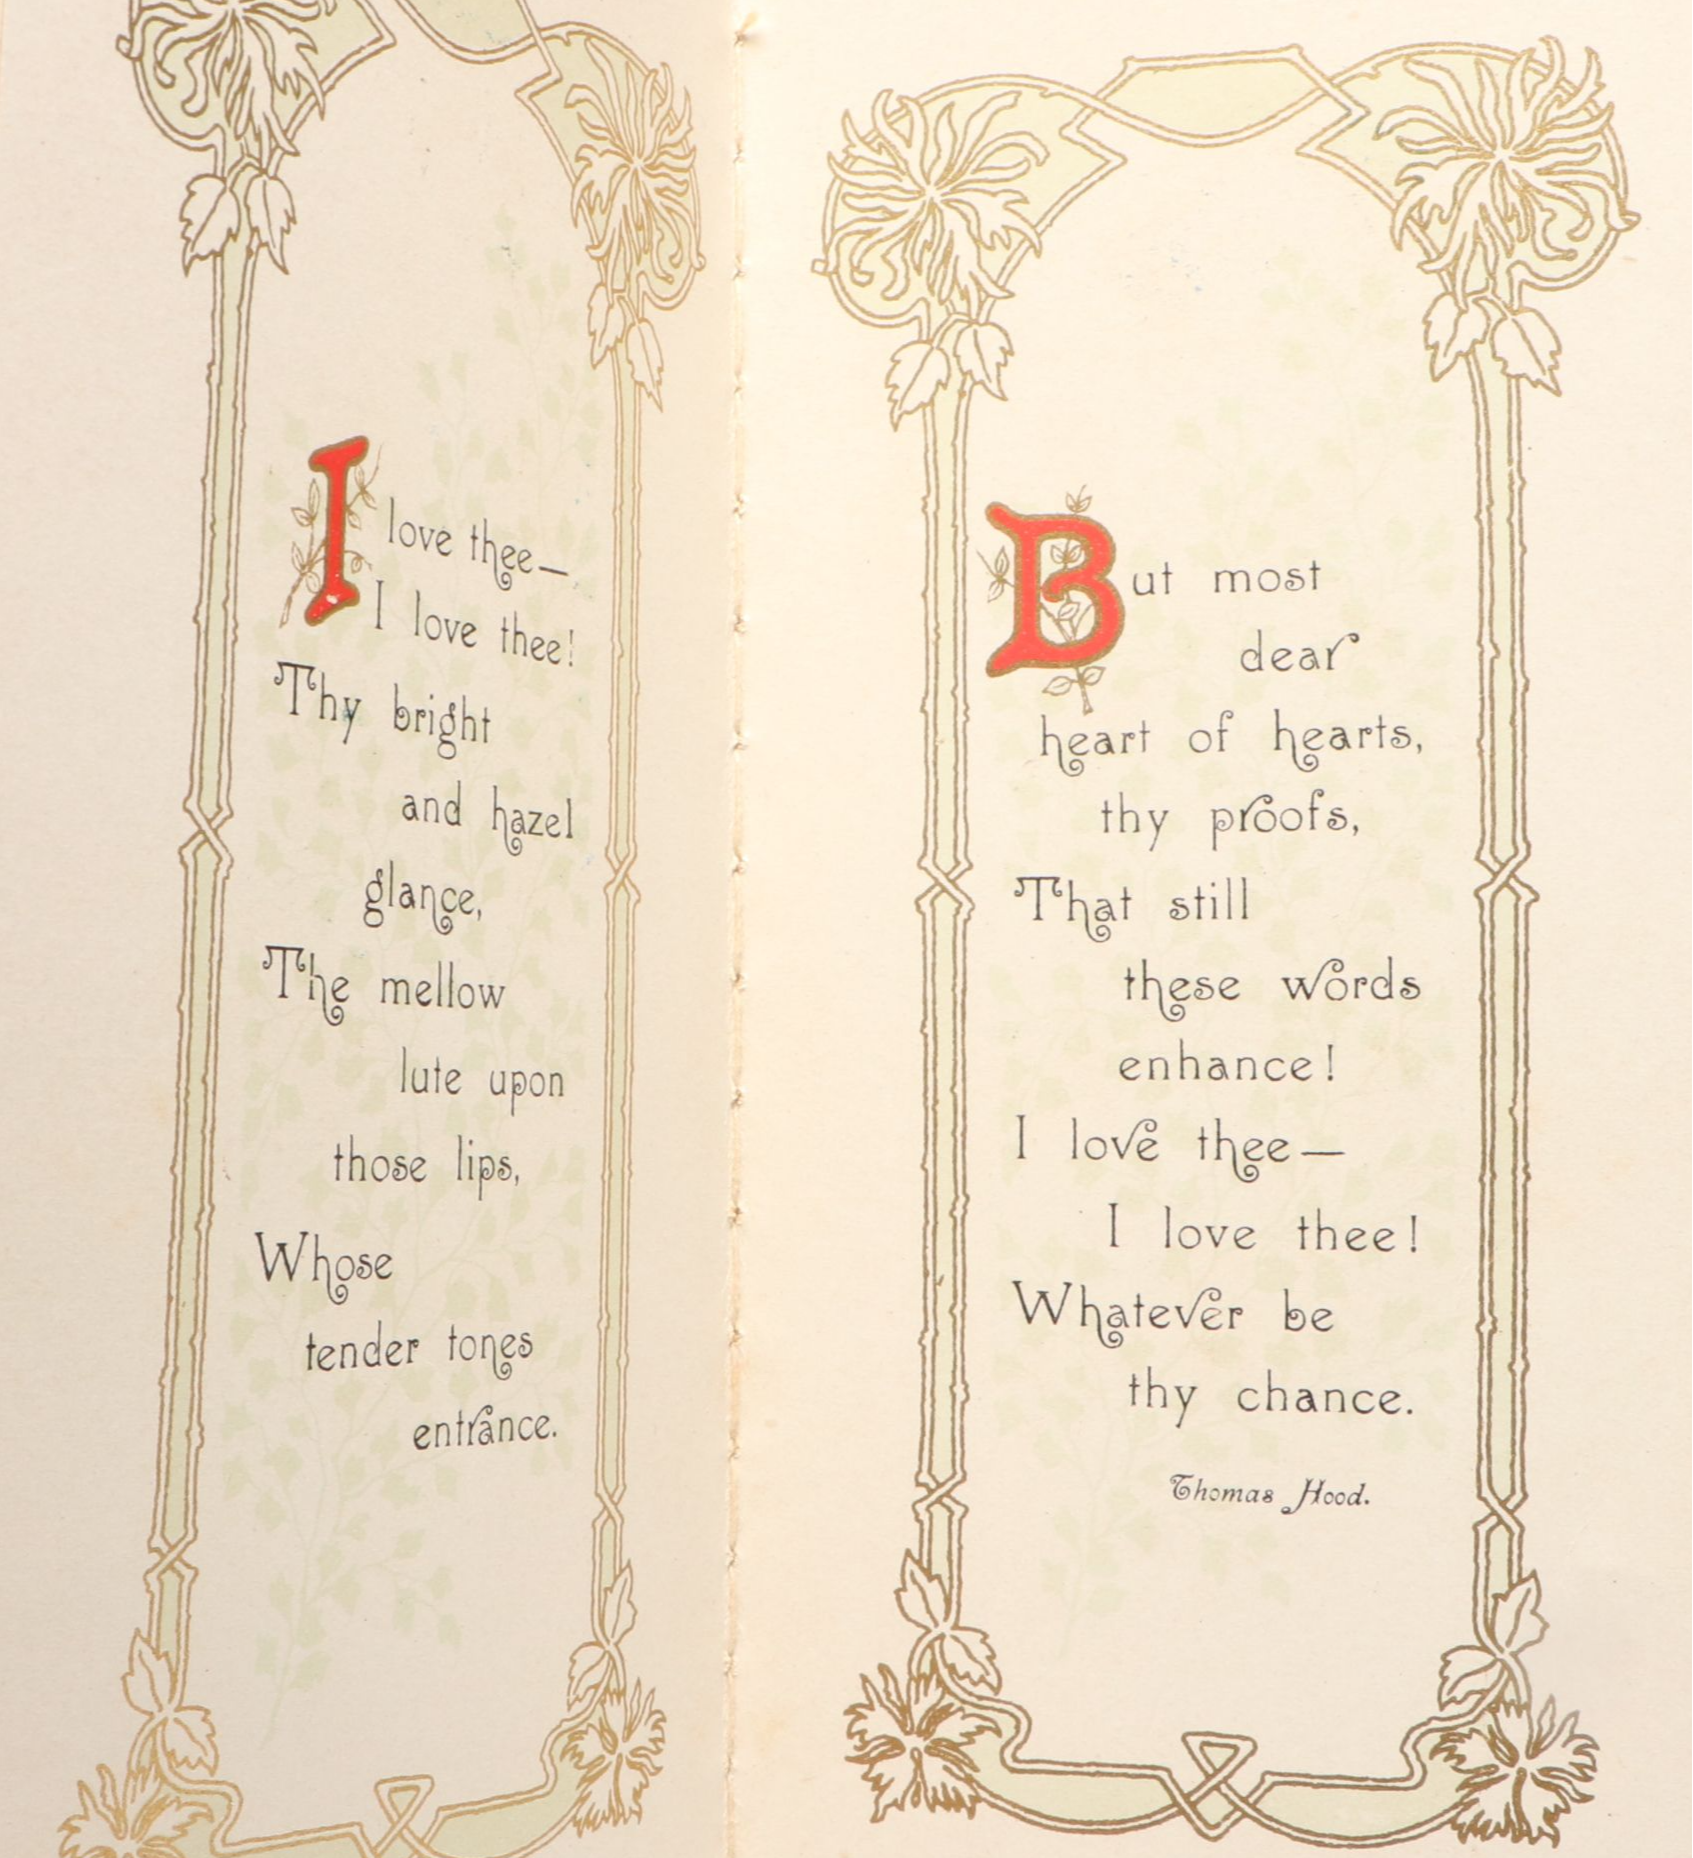 I love thee—
I love thee!
Thy bright
and hazel
glance,
The mellow
lute upon
those lips,
Whose
tender tones
entrance.
But most
dear
heart of hearts,
thy proofs,
That still
these words
enhance!
I love thee—
I love thee!
Whatever be
thy chance.
Thomas Hood.